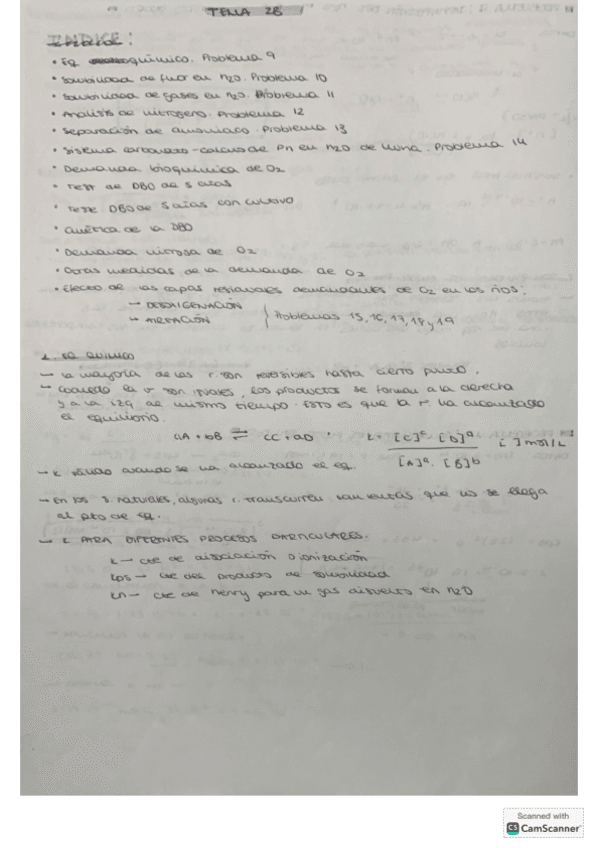 TEMA 2B
INDICE:
• Eq. químico. Problema 9
• Solubilidad de fluor en H2O. Problema 10
• Solubilidad de gases en H2O. Problema 11
• Análisis de nitrogeno. Problema 12
• Separación de amoniaco. Problema 13
• Sistema carbonato - calculo de PH en H2O de lluvia. Problema 14
• Demanda bioquimica de O2
• Test de DBO de 5 dias
• Test DBO de 5 dias con cultivo
• Cinética de la DBO
• Demanda nitrosa de O2
• Otras medidas de la demanda de O2
• Efecto de las capas residuales demandantes de O2 en los rios:
→ DESOXIGENACIÓN
→ AIREACIÓN } Problemas 15, 16, 17, 18 y 19
1. EQ. QUIMICO
→ La mayoría de las r. son reversibles hasta cierto punto.
→ Cuando la v son iguales, los productos se forman a la derecha
y a la izq al mismo tiempo. Esto es que la r. ha alcanzado
el equilibrio.
aA + bB ⇌ cC + dD K = [C]c · [D]d / [A]a · [B]b [ ] mol/L
→ K válido cuando se ha alcanzado el eq.
→ En los s. naturales, algunas r. transcurren tan lentas que no se llega
al pto de eq.
→ K PARA DIFERENTES PROCESOS PARTICULARES.
K → cte de disociación o ionización
Kps → cte del producto de solubilidad
KH → cte de Henry para un gas disuelto en H2O
Scanned with
CS CamScanner